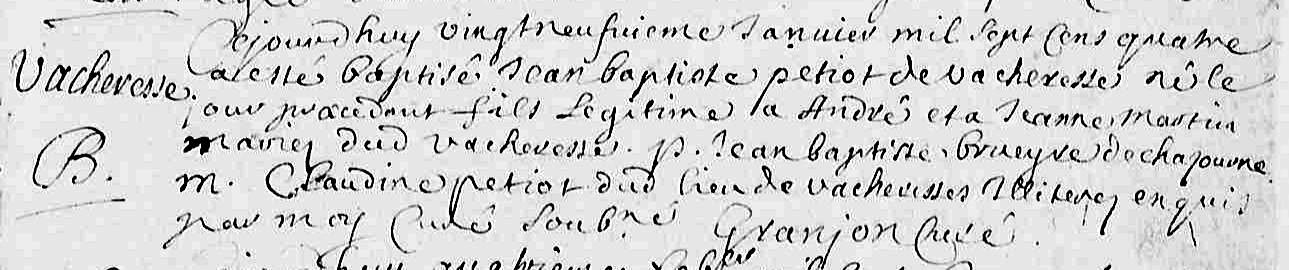 Cejourdhuy vingtneufuieme Januier mil sept cens quatre
Vacheresse. a esté baptisé Jean baptiste petiot de vacheresse né le
jour precedent fils Legitime a André et a Jeanne Martin
B. mariez dud vacheresse. p. Jean baptiste brueyre de chajourne
m. Claudine petiot dud lieu de vacheresses Illiterez enquis
par moy Curé soubné Granjon Curé.